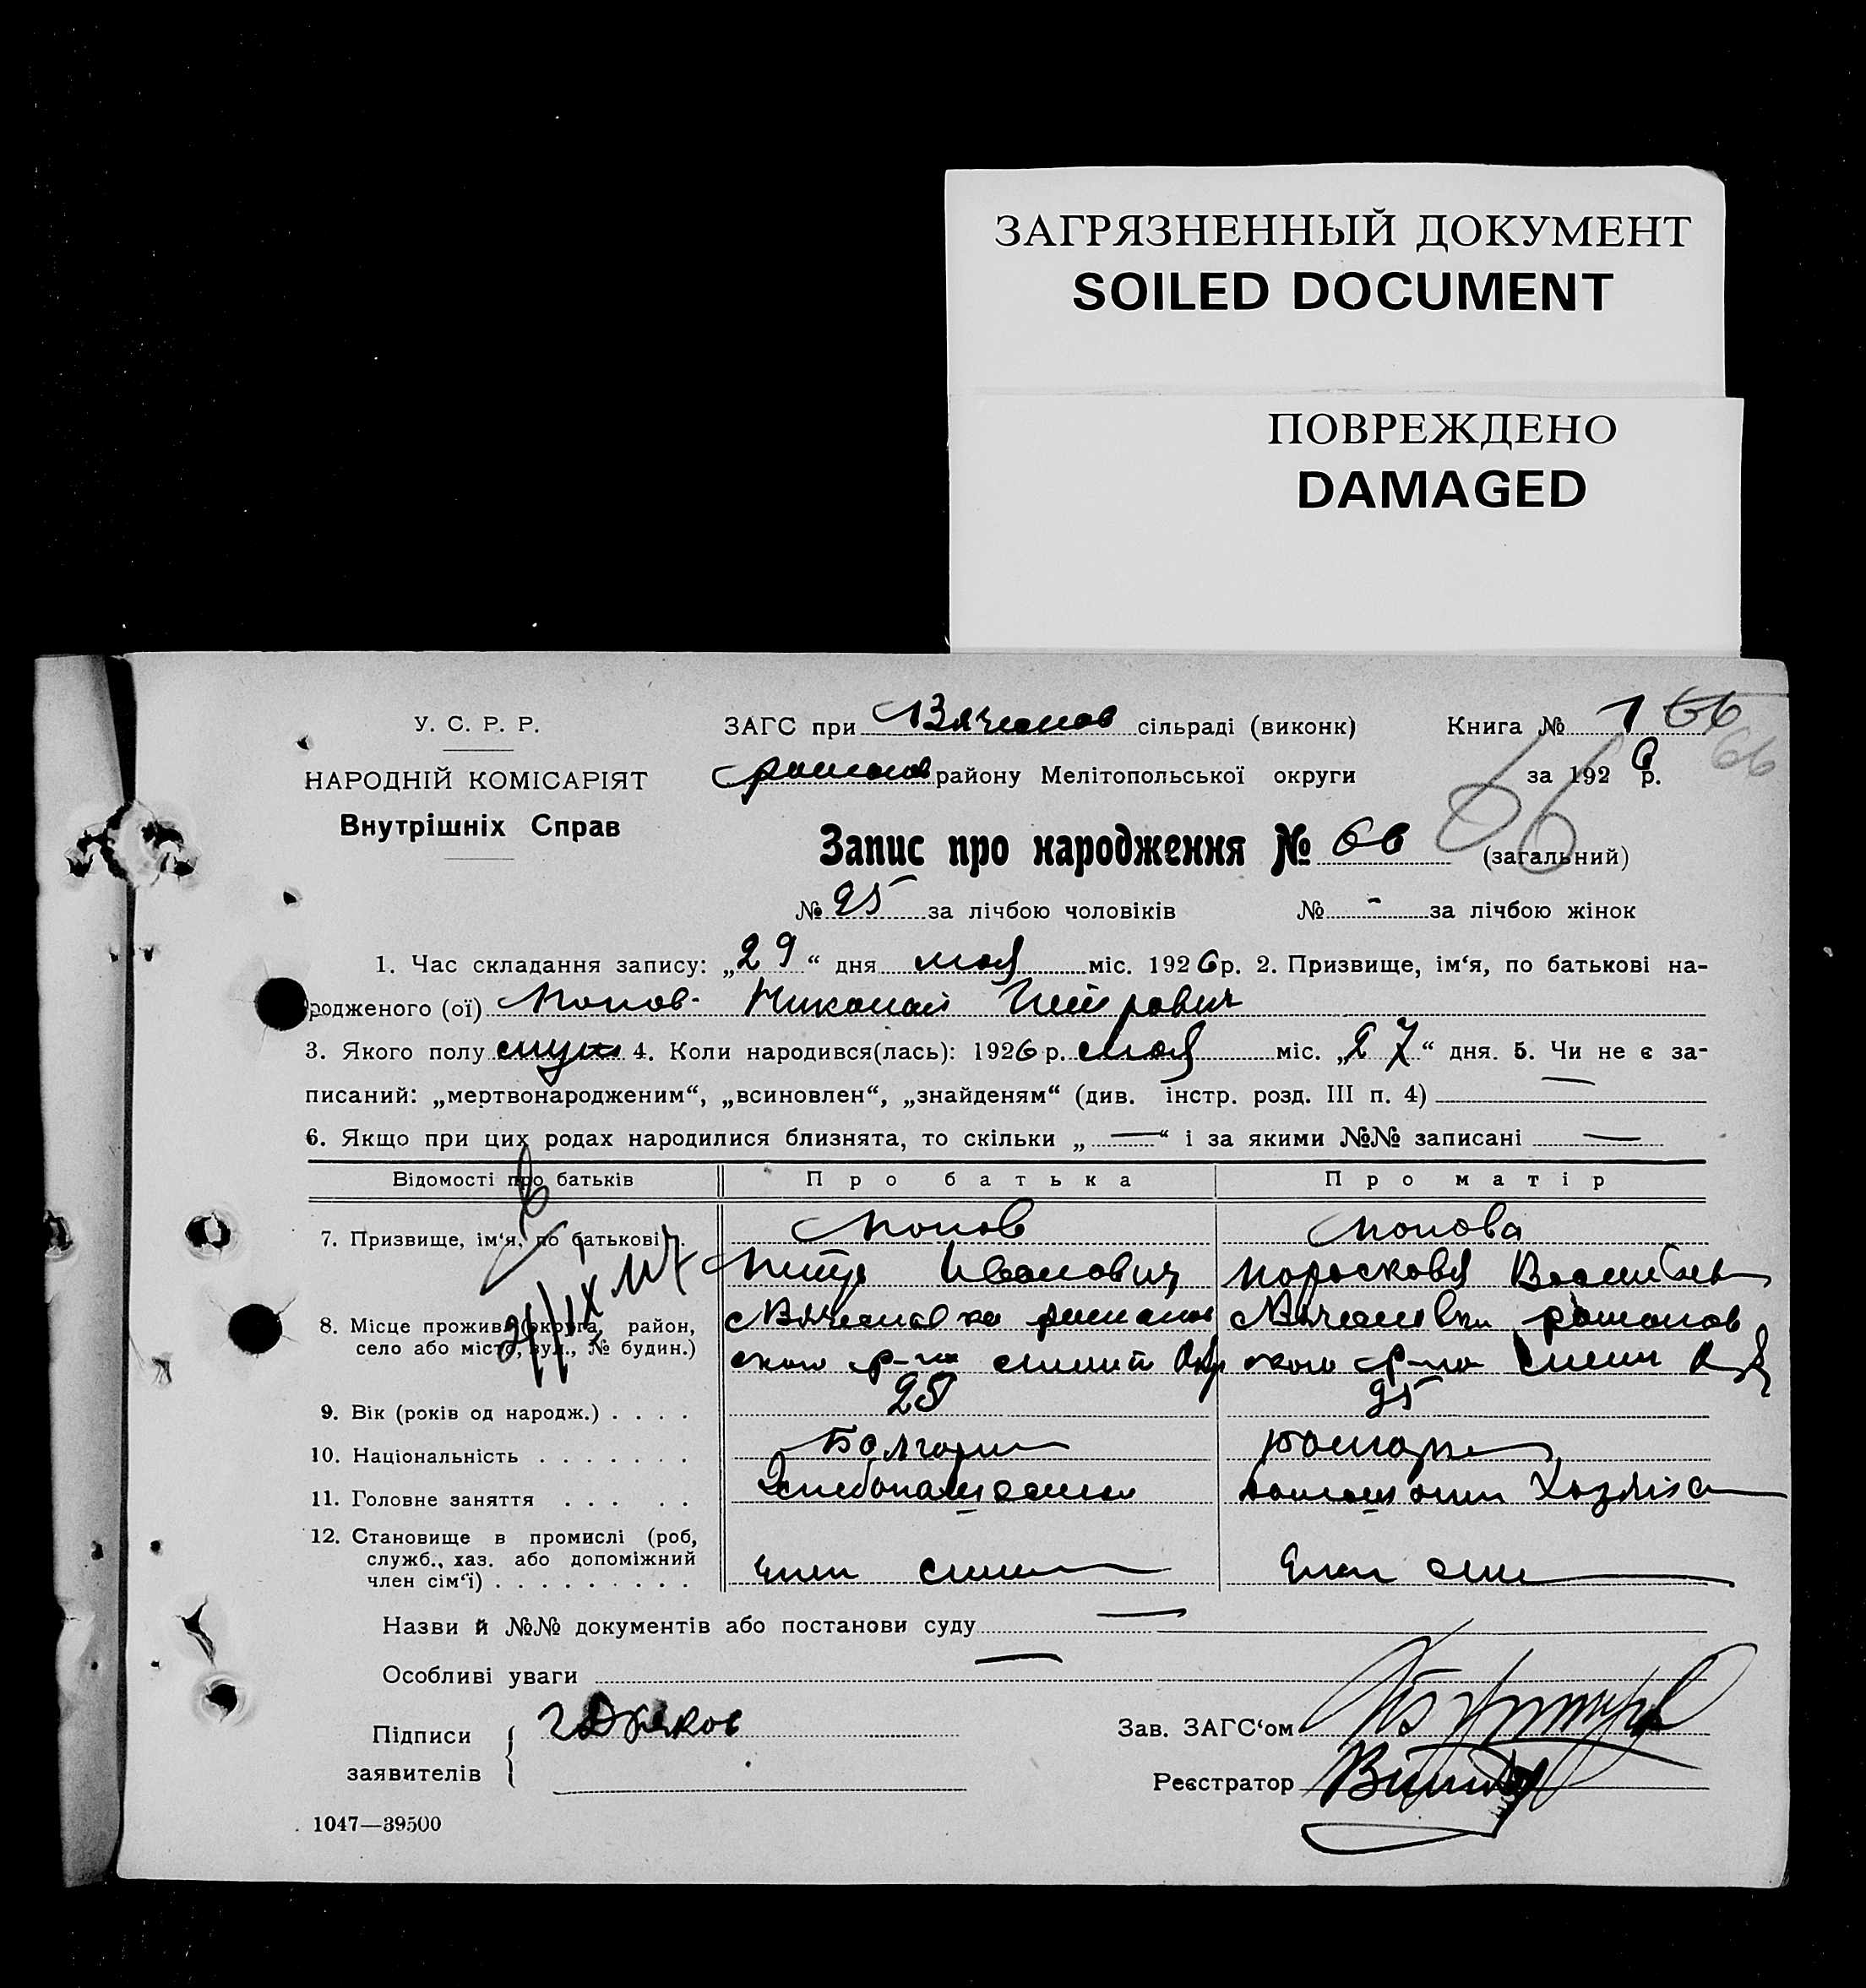 ЗАГРЯЗНЕННЫЙ ДОКУМЕНТ
SOILED DOCUMENT
ПОВРЕЖДЕНО
DAMAGED
У. С. Р. Р.
НАРОДНІЙ КОМІСАРІЯТ
Внутрішніх Справ
ЗАГС при Вячеслов сільраді (виконк)
районy Мелітопольської округи
Книга № 1 66
66
за 1926 р.
Запис про народження № 66 66 (загальний)
№ 25 за лічбою чоловіків № - за лічбою жінок
1. Час складання запису: „29“ дня мая міс. 1926 р. 2. Призвище, ім‘я, по батькові на-
родженого (ої) Попов Николай Петрович
3. Якого полу муж 4. Коли народився(лась): 1926 р. мая міс. „27“ дня. 5. Чи не є за-
писаний: „мертвонародженим“, „всиновлен“, „знайденям“ (див. інстр. розд. III п. 4) —
6. Якщо при цих родах народилися близнята, то скільки „—“ і за якими №№ записані —
Відомості про батьків Про батька Про матір
7. Призвище, ім‘я, по батькові . Попов Попова
Петр Иванович Парасковья Васильев
8. Місце прожив. (округа, район,
село або місто, вул., № будин.)
Вячеславка Вячеславка
ского р-на ского р-на
9. Вік (років од народж.) . . . . 25 25
10. Національність . . . . . . . Болгарин Болгарка
11. Головне заняття . . . . . Хлебопашество Домашняя Хозяйка
12. Становище в промислі (роб,
служб., хаз. або допоміжний
член сім‘ї) . . . . . . . . .
член семи член семи
Назви й №№ документів або постанови суду —
Особливі уваги —
Підписи
заявителів
Зав. ЗАГС‘ом
Реєстратор
1047—39500